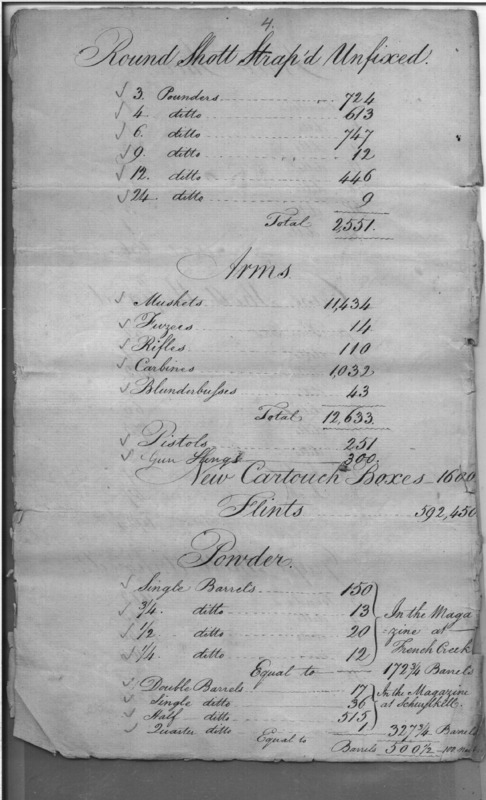 4.
Round Shott Strap'd Unfixed.
√ 3. Pounders 724
√ 4. ditto 613
√ 6. ditto 747
√ 9. ditto 12
√ 12. ditto 446
√ 24. ditto 9
Total 2,551.
Arms.
√ Muskets 11,434
√ Fuzees 14
√ Rifles 110
√ Carbines 1,032
√ Blunderbusses 43
Total 12,633.
√ Pistols 251
√ Gun Slings 300.
New Cartouch Boxes 1600
Flints 592,450
Powder.
√ Single Barrels 150
√ 3/4 ditto 13 In the Maga
√ 1/2 ditto 20 -zine at
√ 1/4 ditto 12 French Creek
Equal to 172 3/4 Barrels
√ Double Barrels 17 In the Magazine
√ Single ditto 36 at Schuylkill
√ Half ditto 515
√ Quarter ditto 1 327 3/4 Barrels
Equal to Barrels 500 1/2